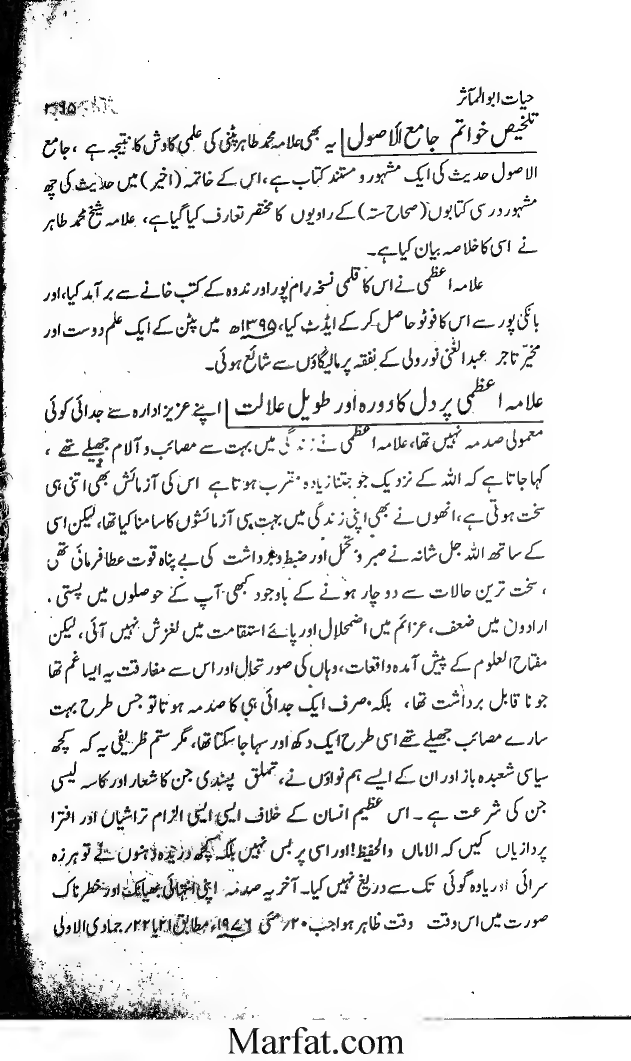 حیات ابوالمآثر
تلخیص خواتم جامع الاصول یہ بھی علامہ محمد طاہر پٹنی کی علمی کاوش کا نتیجہ ہے ، جامع
الاصول حدیث کی ایک مشہور و مستند کتاب ہے، اس کے خاتمہ (اخیر) میں حدیث کی چھ
مشہور درسی کتابوں (صحاح ستہ) کے راویوں کا مختصر تعارف کیا گیا ہے، علامہ شیخ محمد طاہر
نے اسی کا خلاصہ بیان کیا ہے۔
علامہ اعظمی نے اس کا قلمی نسخہ رام پور اور ندوہ کے کتب خانے سے برآمد کیا، اور
بانکی پور سے اس کا فوٹو حاصل کر کے ایڈٹ کیا، ۱۳۹۵ھ میں پٹن کے ایک علم دوست اور
مخیر تاجر عبدالغنی نور ولی کے نفقہ پر مالیگاؤں سے شائع ہوئی۔
علامہ اعظمی پر دل کا دورہ اور طویل علالت اپنے عزیز ادارہ سے جدائی کوئی
معمولی صدمہ نہیں تھا، علامہ اعظمی نے زندگی میں بہت سے مصائب و آلام جھیلے تھے ،
کہا جاتا ہے کہ اللہ کے نزدیک جو جتنا زیادہ مقرب ہوتا ہے اس کی آزمائش بھی اتنی ہی
سخت ہوتی ہے، انھوں نے بھی اپنی زندگی میں بہت سی آزمائشوں کا سامنا کیا تھا، لیکن اسی
کے ساتھ اللہ جل شانہ نے صبر و تحمل اور ضبط و برداشت کی بے پناہ قوت عطا فرمائی تھی
، سخت ترین حالات سے دوچار ہونے کے باوجود کبھی آپ کے حوصلوں میں پستی ،
ارادوں میں ضعف، عزائم میں اضمحلال اور پائے استقامت میں لغزش نہیں آئی، لیکن
مفتاح العلوم کے پیش آمدہ واقعات، وہاں کی صورتحال اور اس سے مفارقت یہ ایسا غم تھا
جو نا قابل برداشت تھا، بلکہ صرف ایک جدائی ہی کا صدمہ ہوتا تو جس طرح بہت
سارے مصائب جھیلے تھے اسی طرح ایک دکھ اور سہا جا سکتا تھا، مگر ستم ظریفی یہ کہ کچھ
سیاسی شعبدہ باز اور ان کے ایسے ہم نواؤں نے، تملق پسندی جن کا شعار اور کاسہ لیسی
جن کی شرعت ہے ۔ اس عظیم انسان کے خلاف ایسی ایسی الزام تراشیاں اور افترا
پردازیاں کیں کہ الاماں والحفیظ! اور اسی پر بس نہیں بلکہ کچھ دریدہ ذہنوں نے تو ہرزہ
سرائی اور یاوہ گوئی تک سے دریغ نہیں کیا۔ آخر یہ صدمہ اپنی انتہائی بھیانک اور خطرناک
صورت میں اس وقت وقت ظاہر ہوا جب ۲۰/ مئی ۱۹۷۶ء مطابق ۲۱یا۲۲/ جمادی الاولی
Marfat.com